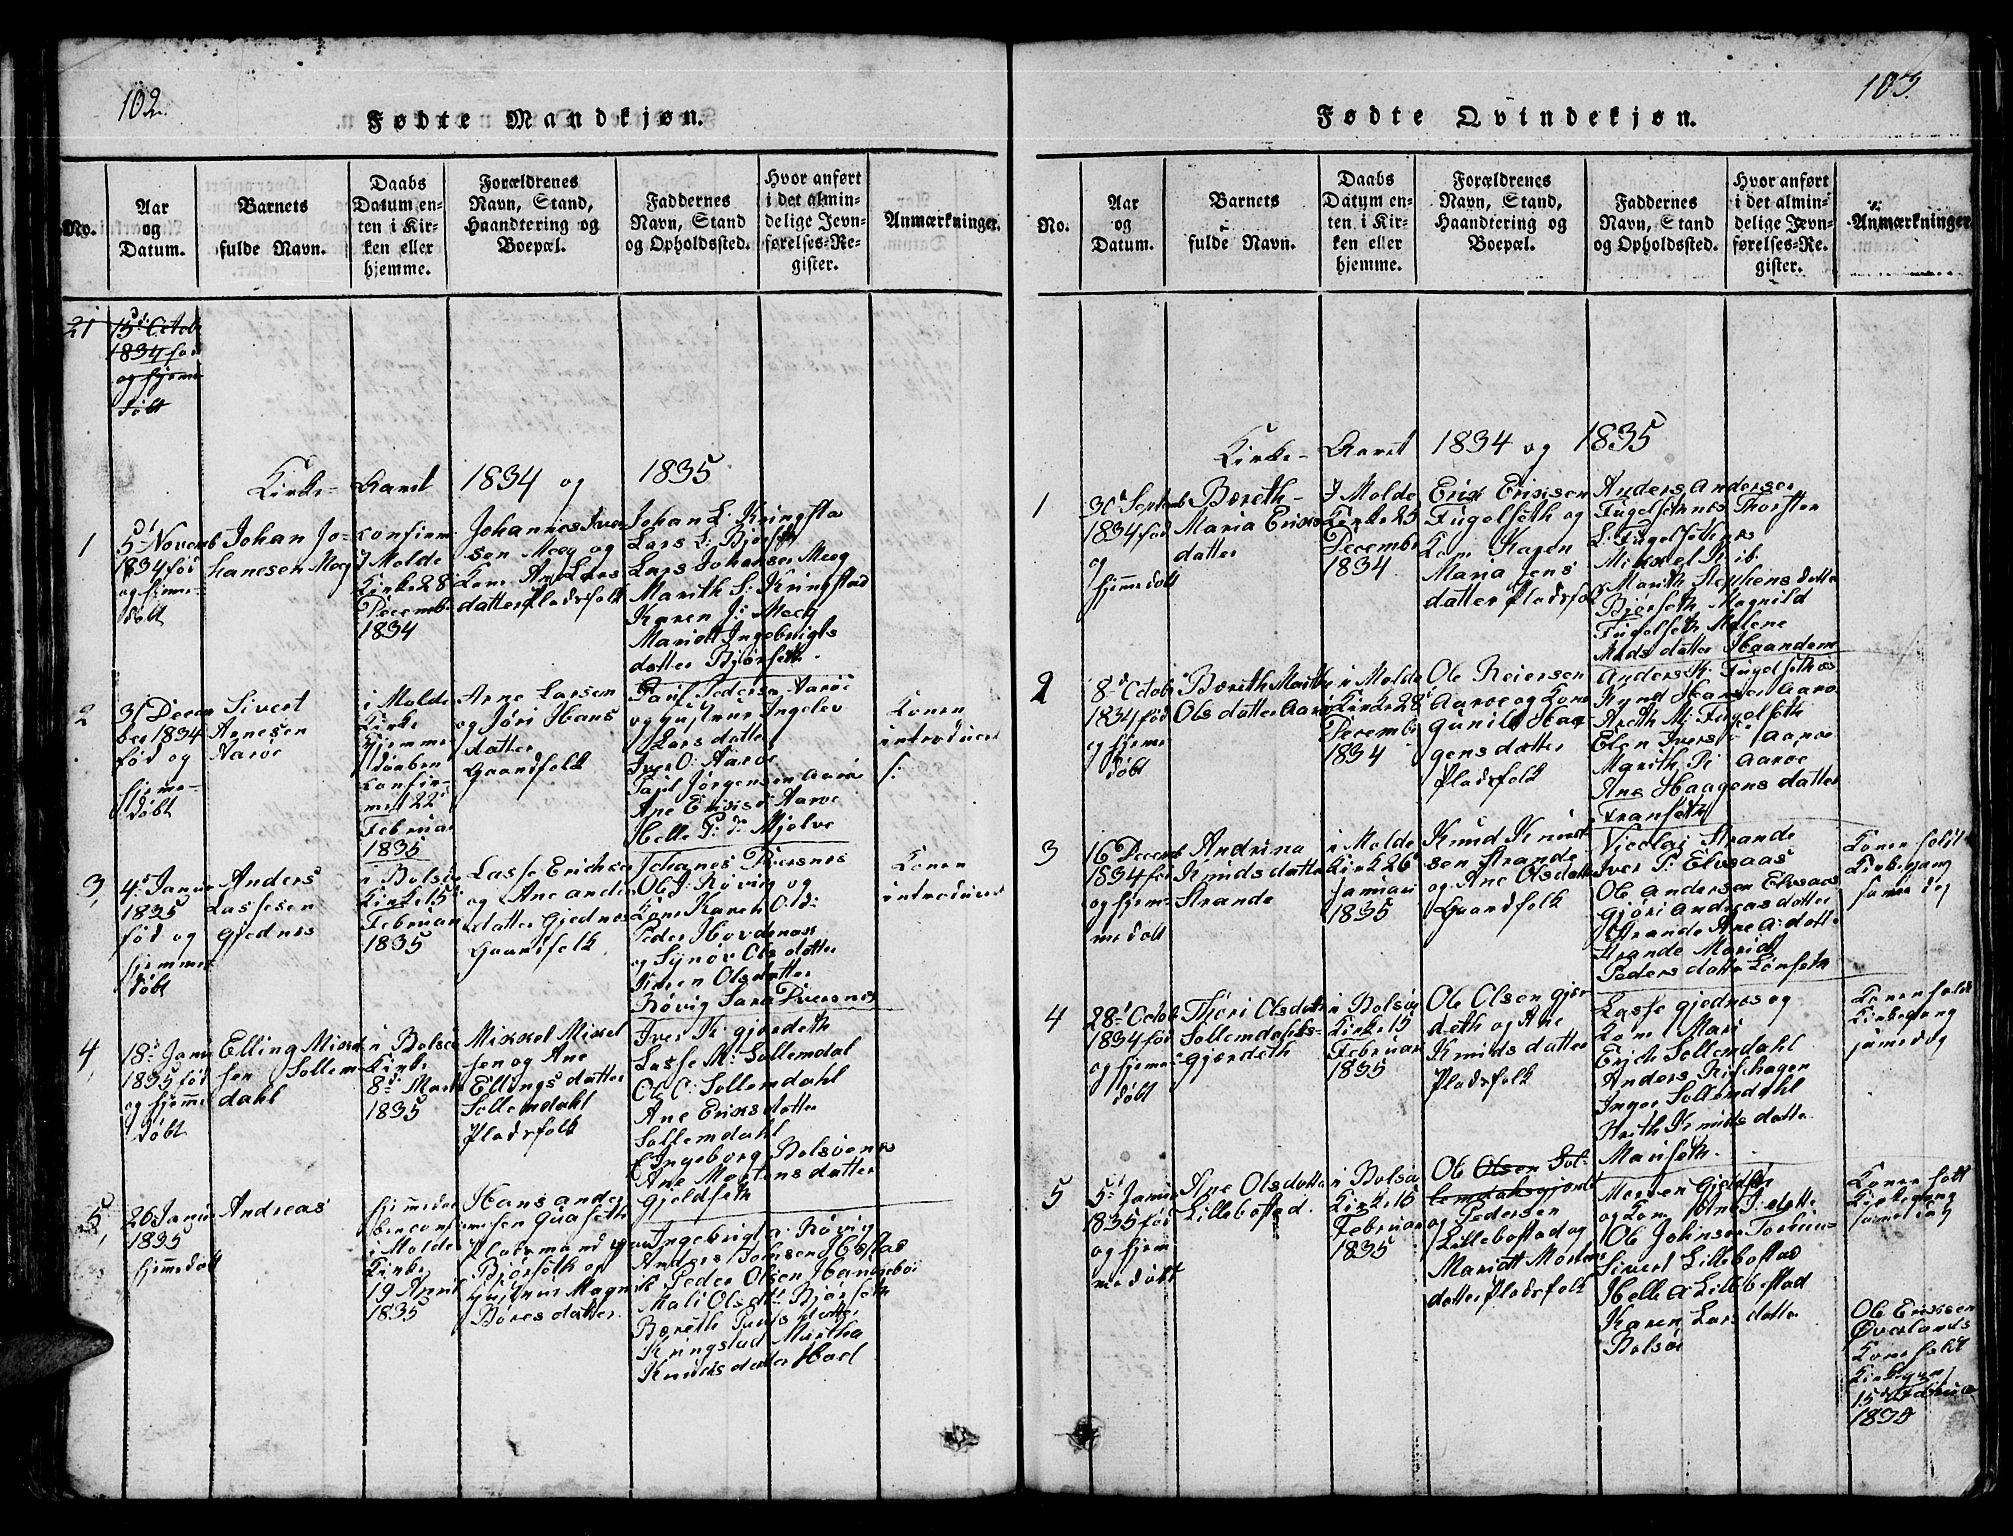 102.
Fødte Mandkjøn.
No.
Aar
og
Datum.
Barnets
fulde Navn.
Daabs
Datum en-
ten i Kir-
ken eller
hjemme.
Forældrenes
Navn, Stand,
Haandtering og
Boepæl.
Faddernes
Navn, Stand
og Opholdssted.
Hvor anført
i det almin-
delige Jevn-
førelses-Re-
gister.
Anmærkninger.
21
15de Octob
1834 fød
og hjeme
døbt
Kirke- Aaret 1834 og 1835
1
5 Novemb
1834 fød
og hjeme-
døbt
Johan Jo-
hanesen Moeg
confirm
I Molde
Kirke 28
Decemb
1834
Johannes Iver
sen Moeg og
Kone Ane Lars
datter Pladsfolk
Johan L: Kringsta
Lars L: Bjørseth
Lars Johansen Moeg
Marith S: Kringstad
Karen J: Moeg
Mariatt Ingebrigts
datter Bjørseth
2
31 Decem
ber 1834
fød og
hjeme-
døbt
Sivert
Arnesen
Aarøe
i Molde
Kirke
Hjemme
daaben
Confir-
met 22
Februar
1835
Arne Larsen
og Jøri Hans
datter
Gaardfolk
Paul Pedersen Aarøe
og Hustrue Ingebor
Lars datter
Iver O: Aarøe
Paul Jørgensen Aarøe
Ane Eriks d Aarøe
Helle P: d: Mjelve
Konen
introduceret
3,
4 Januar
1835
fød og
hjemme
døbt
Anders
Lassesen
Gjednes
i Bolsøe
Kirke 15
Februar
1835
Lasse Erichsen
og Ane Anders
datter Gjednes
Gaardfolk
Ole J: Røvig og
Kone Karen O:d:
Peder Hovdenax
og Synøv Ols datter
Olsdatter
Røvig Sara
Konen
introduceret
4,
18 Janu
1835 fød
og hjemme
døbt
Elling Mikkel
sen Sollem
dahl
i Bolsøe
Kirke
8 Marts
1835
Mikkel Mikel
sen og Ane
Ellings datter
Sollemdahl
Pladsfolk
Iver K: Gjerdeth
Lasse M: Sollemdal
Ole O: Sollemdahl
Ane Eriks datter
Sollemdahl
Ingeborg Bolsøenes
Ane Mortens datter
Gjeldseth
5,
26 Janu
1835
hjemedøbt
Andreas
hjemmeda
ben conf
i Molde
Kirke
19 April
1835
Hans Ander
sen
Pladsmand paa
Bjørseth og
Hustrue Magnil
Børes datter
Ingebrigt A: Røvig
Anders Johnsen Ebstad
Peder Olsen
Mali Ols dt Bjørseth
Bereth Pouls datter
Kringstad Martha
Knuds datter Hoel
103.
Fødte Qvindekjøn.
No.
Aar
og
Datum.
Barnets
fulde Navn.
Daabs
Datum en-
ten i Kir-
ken eller
hjemme.
Forældrenes
Navn, Stand,
Haandtering og
Boepæl.
Faddernes
Navn, Stand
og Opholdssted.
Hvor anført
i det almin-
delige Jevn-
førelses-Re-
gister.
Anmærkninger
Kirke- Aaret 1834 og 1835
1
30 Septemb
1834 fød
og
hjemedøbt
Bereth-
Maria Eriks
datter
I Molde
Kirke 25
Decembr
1834
Erik Eriksen
Fugelseth og
Kone Karen
Maria Jens
datter Pladsfolk
Anders Andersen
Fugelsetnes Thorsten
L: Fugelsethnes
Mikkel
Marith Stephens datter
Bjørseth Magnild
Fugelseth Malene
Mads datter
2
8 Octob
1834 fød
og hjeme
døbt
Bereth Marith
Ols datter Aarøe
i Molde
Kirke 28
Decembr
1834
Ole Reiersen
Aarøe og Kone
Gunild Haa
gens datter
Pladsfolk
Anders K: Fugelsethnes
Hans Aarøe
Areth M: Fugelseth
Elen Ivers d Aarøe
Marith P: Aarøe
Ane Haagens datter
Franseth
3
16 Decemb
1834 fød
og hjem
me døbt
Andrina
Knuds datter
Strande
i Molde
Kirke 26
Januar
1835
Knud Knud
sen Strande
og Ane Ols datter
Gaardfolk
Nicolai Strande
Iver P: Elvsaas
Ole Andersen Elvsaas
Gjøri Andreas datter
Strande Ane A: datter
Strande Maria
Peders datter Lønseth
Konen holdt
Kirkegang
samme dag
4
28 Octob
1834 fød
og hjeme
døbt
Thøri Ols datter
Sollemdahls-
gjerdeth
i Bolsøe
Kirke 15
Februar
1835
Ole Olsen Gjer
deth og Ane
Knuds datter
Pladsfolk
Lasse Gjednes og
Kone Mari
Erich Sollemdahl
Anders Riishagen
Inger Sollemdahl
Knuds datter
Mariseth.
Konen holdt
Kirkegang
same dag
5
5 Janu
1835 fød
og hjem
me døbt
Ane Ols datter
Lillebostad.
i Bolsø
Kirke 15
Februar
1835
Ole Olsen Sol-
lemdalsgjerdt
og Pedersen
Lillebostad og
Mariatt Mortens
datter Pladsfolk
og Kone Ane J: datter
Ole Johnsen
Sivert Lillebostad
Helle A Lillebostad
Karen Lars datter
Bolsøe
Konen holt
Kirkegang
same dag
Ole Eriksen
Øverlands
Kone holdt
Kirkegang
15 Februar
1835